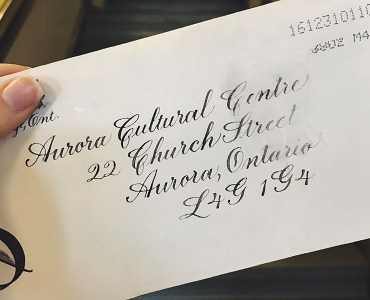 1612310110
Ont.
Aurora Cultural Centre
22 Church Street
Aurora, Ontario
L4G 1G4